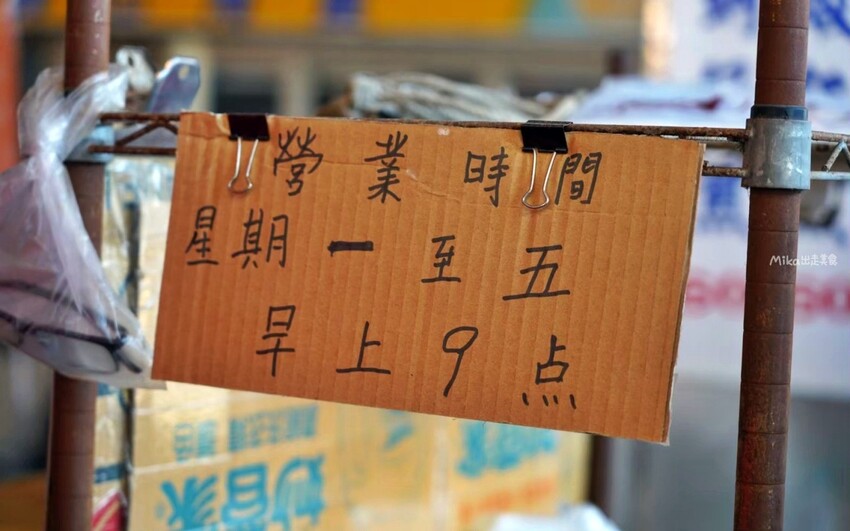 營業時間
星期一至五
早上9点
Mika出走美食
妙管家